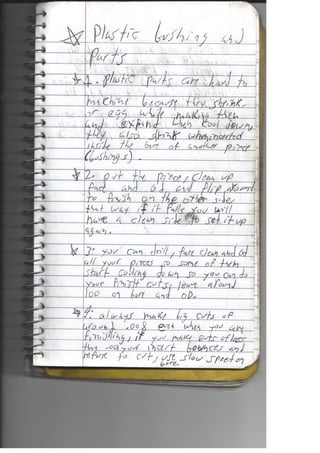 Plastic bushing and
Parts
1. plastic parts are hard to
machine because they shrink
or egg while making them
and expand when cool down,
they also shrink when inserted
inside the bore of another piece
(bushings).
2. put the piece, clean up
face and od and flip around
to finish on the other side
that way if it you will
have a clean side to set it up
again.
3. you can drill, face clean and od
all your pieces so some of them
start cooling down so you can do
your finish cuts, leave around
100 on bore and OD.
4. always make big cuts of
around .008 even when you are
finishing, if you make cuts of less
your insert bounces and
refuse to cut, use slow speed on
bore